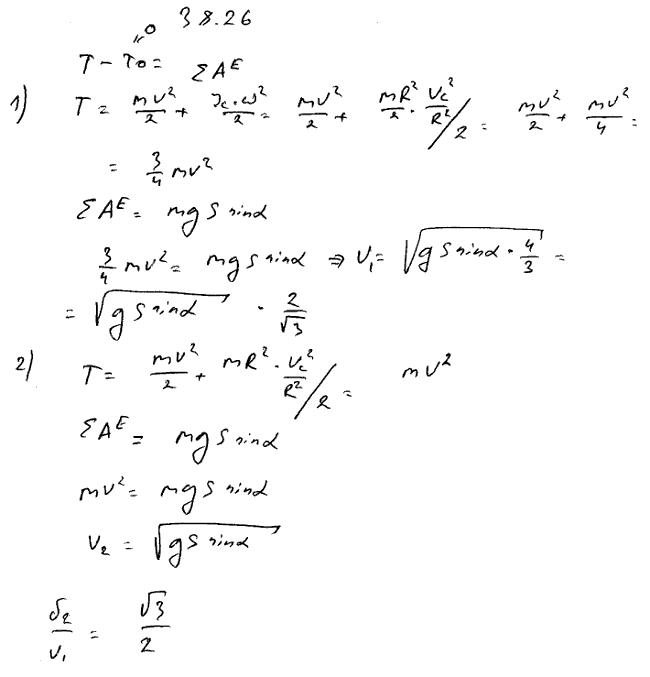 38.26
T - T₀ = ΣAᴱ
"0
1) T = mv²/2 + Jc·ω²/2 = mv²/2 + mR²/2 · Vc²/R² /2 = mv²/2 + mv²/4 =
= 3/4 mv²
ΣAᴱ = mg S sinα
3/4 mv² = mg s sinα ⇒ V₁ = √(g S sinα · 4/3) =
= √(g S sinα) · 2/√3
2) T = mv²/2 + mR² · Vc²/R² /2 = mv²
ΣAᴱ = mg S sinα
mv² = mg S sinα
V₂ = √(gS sinα)
V₂/V₁ = √3/2